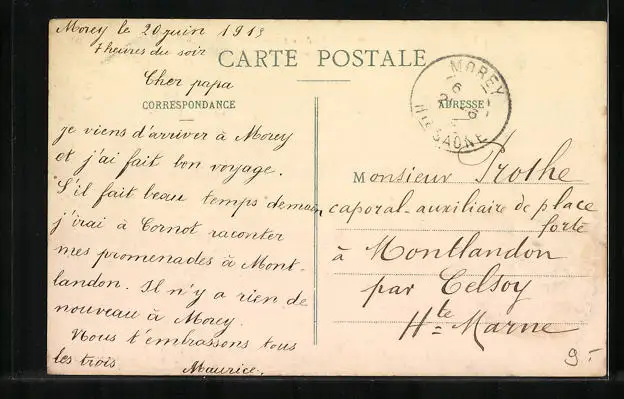 Morey le 20 juin 1913
7 heures du soir
CARTE POSTALE
Cher papa
CORRESPONDANCE
je viens d'arriver à Morey
et j'ai fait bon voyage.
S'il fait beau temps demain
j'irai à Cornot raconter
mes promenades à Mont-
landon. Il n'y a rien de
nouveau à Morey.
Nous t'embrassons tous
les trois Maurice.
MOREY
Hte SAÔNE
ADRESSE
Monsieur Prothe
caporal-auxiliaire de place
forte
à Montlandon
par Celsoy
Hte Marne
9.-